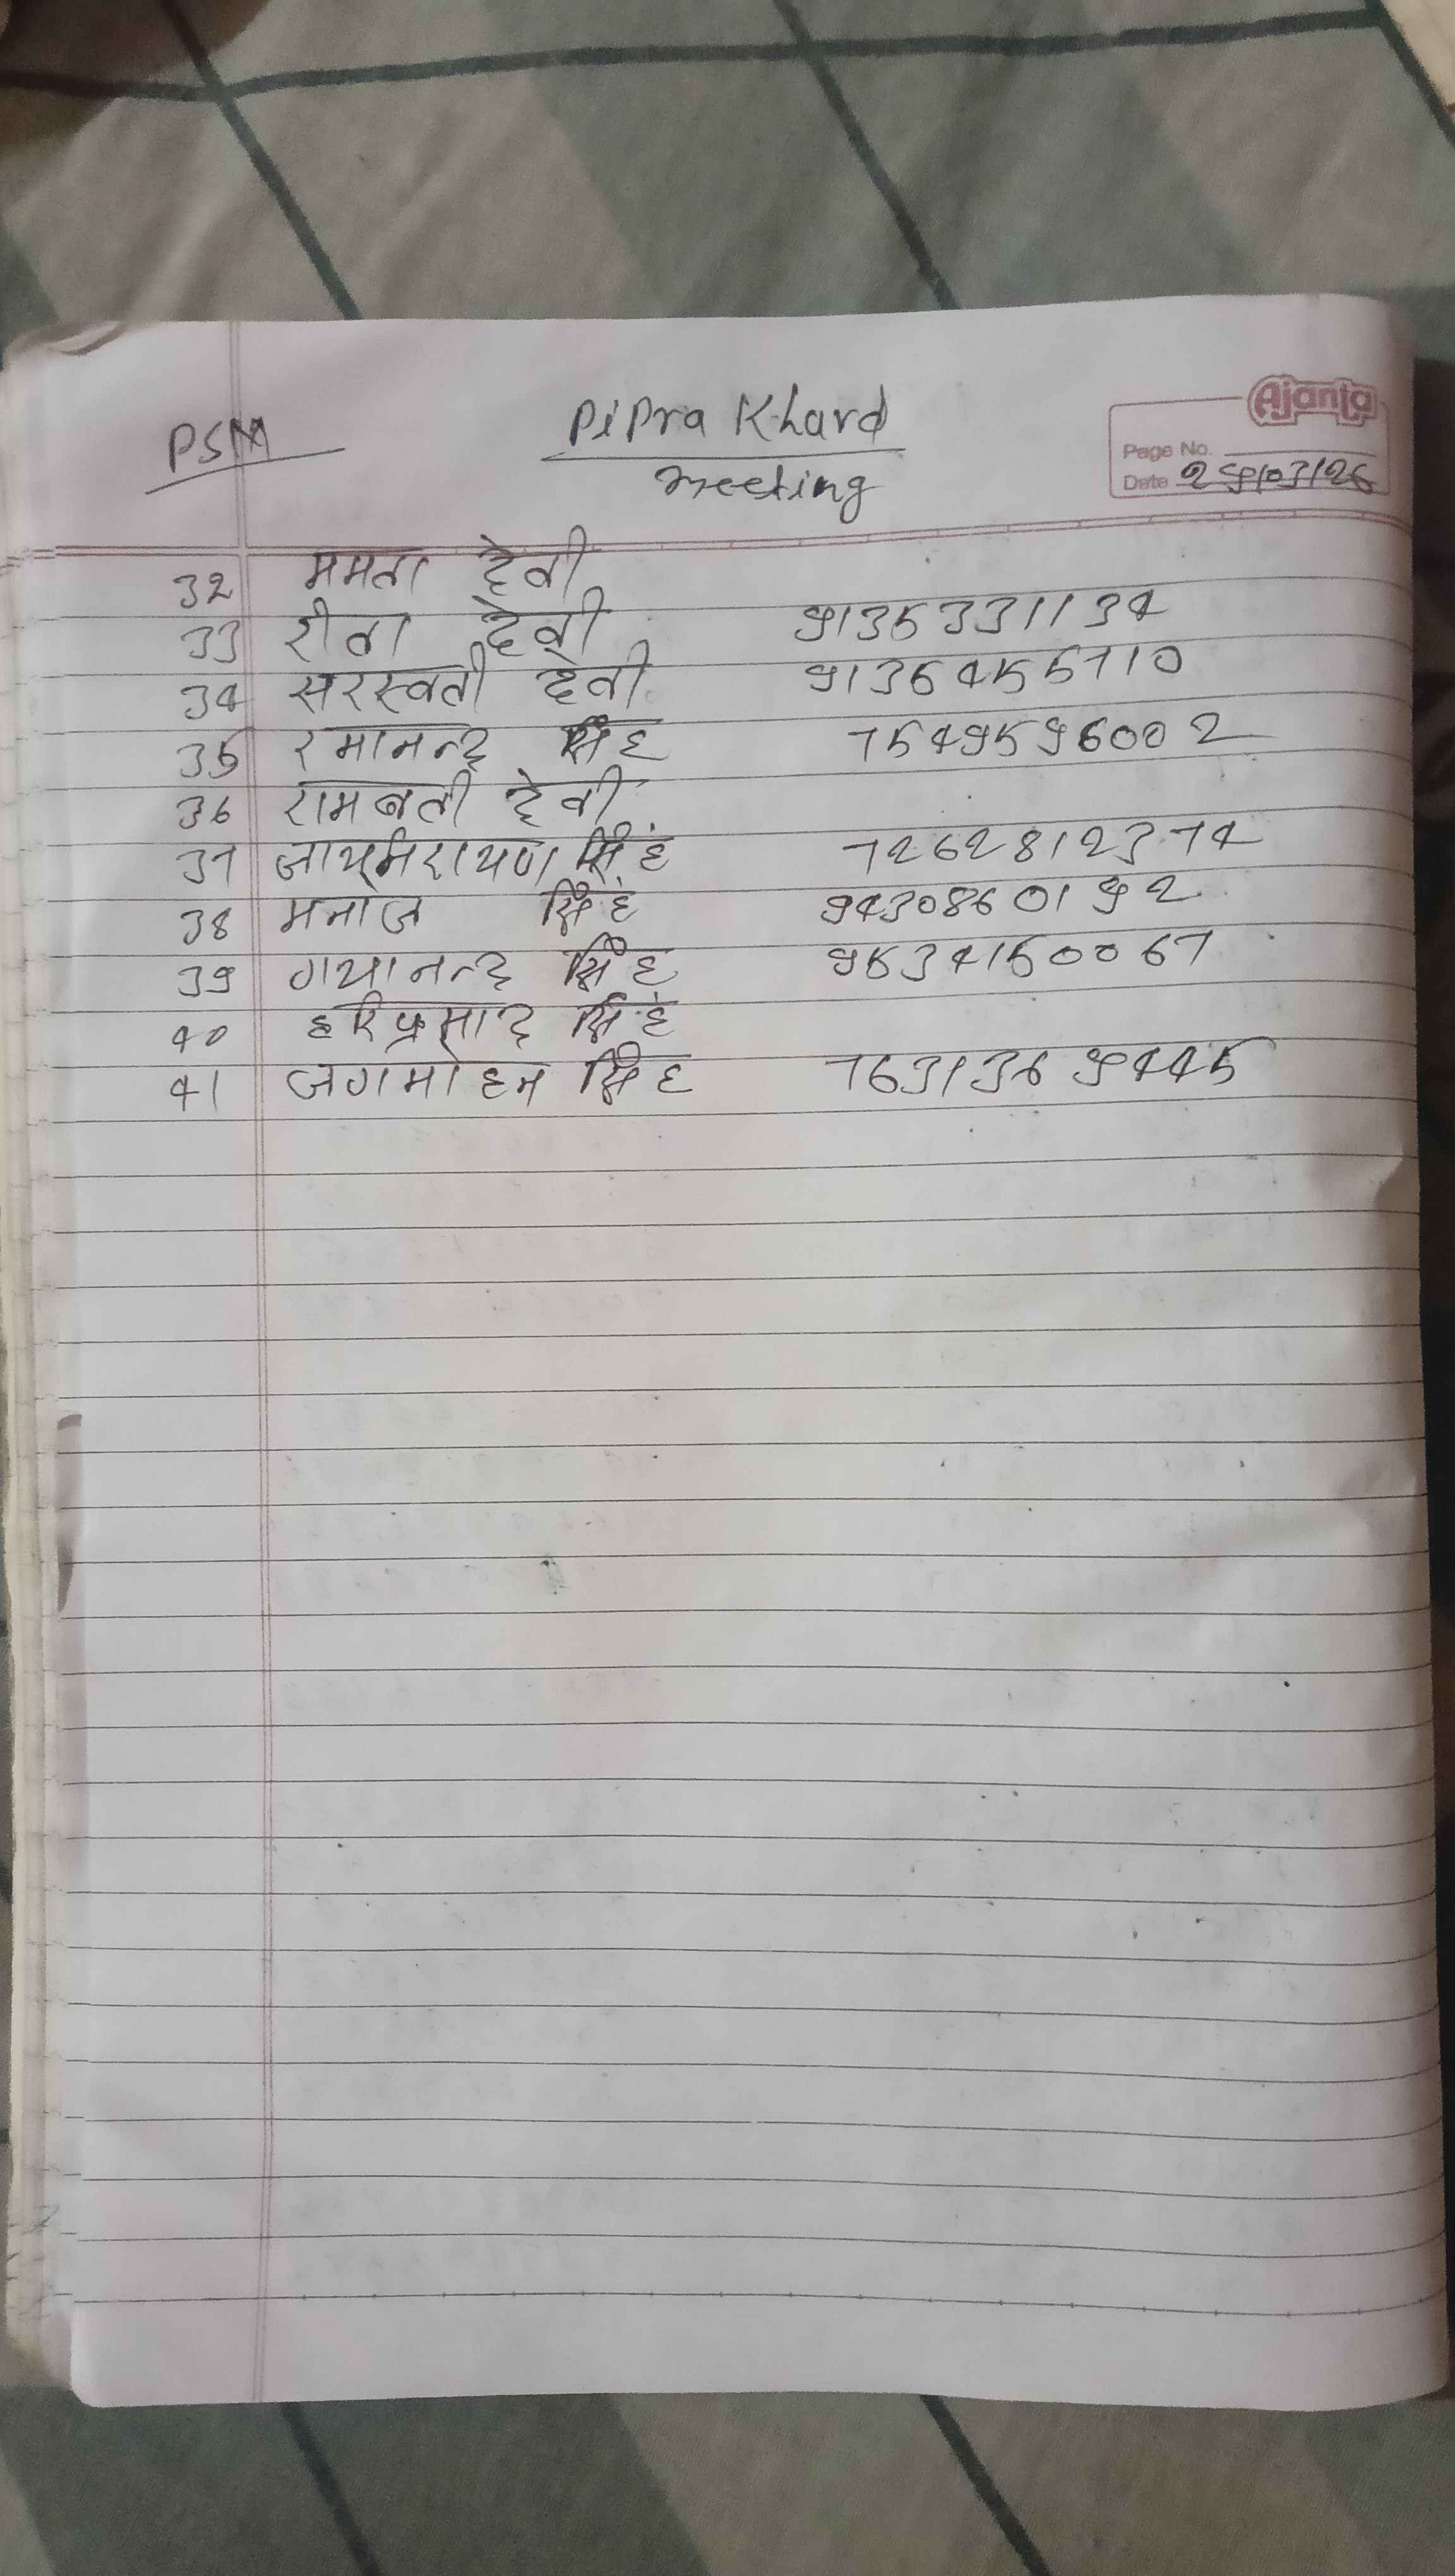 PSM
Pipra Khard
meeting
Ajanta
Page No.
Date 29/03/26
32 ममता देवी
33 रीता देवी 9135331134
34 सरस्वती देवी 9136455710
35 रमानन्द सिंह 7549596002
36 रामवती देवी
37 जायनरायण सिंह 7262812374
38 मनोज सिंह 9430860192
39 गयानन्द सिंह 9534150067
40 हरिप्रसाद सिंह
41 जगमोहन सिंह 7631369445